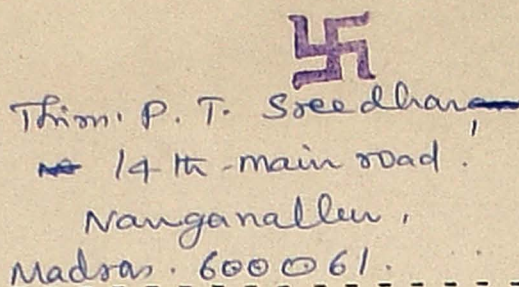 Thiru. P. T. Sreedharan,
14 th main road.
Nanganallur,
Madras. 600061.